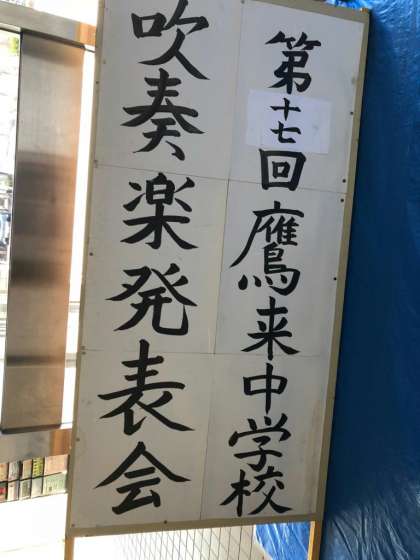 第十七回鷹来中学校
吹奏楽発表会